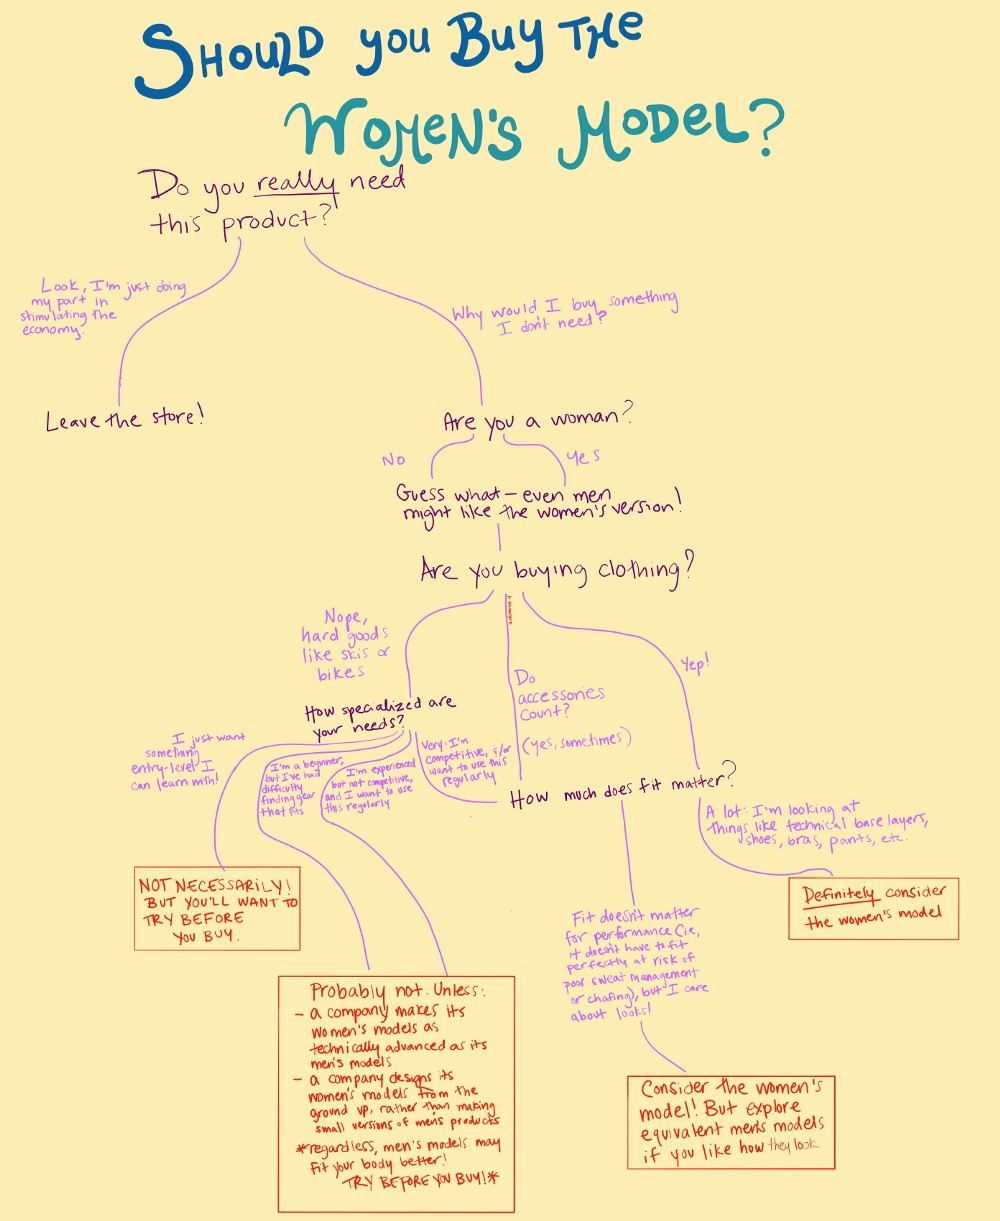 SHOULD you BUY THE
WOMEN'S MODEL?
Do you really need
this product?
Look, I'm just doing
my part in
stimulating the
economy.
Why would I buy something
I don't need?
Leave the store!
Are you a woman?
No
Yes
Guess what — even men
might like the women's version!
Are you buying clothing?
Nope,
hard goods
like skis or
bikes
Do
accessories
count?
(yes, sometimes)
Yep!
How specialized are
your needs?
I just want
something
entry-level I
can learn with!
I'm a beginner,
but I've had
difficulty
finding gear
that fits
I'm experienced
but not competitive,
and I want to use
this regularly
Very: I'm
competitive, &/or
want to use this
regularly
How much does fit matter?
A lot: I'm looking at
things like technical base layers,
shoes, bras, pants, etc.
NOT NECESSARILY!
BUT YOU'LL WANT TO
TRY BEFORE
YOU BUY.
Definitely consider
the women's model
Fit doesn't matter
for performance (ie,
it doesn't have to fit
perfectly at risk of
poor sweat management
or chafing), but I care
about looks!
Probably not. Unless:
- a company makes its
women's models as
technically advanced as its
men's models
- a company designs its
women's models from the
ground up, rather than making
small versions of men's products
*regardless, men's models may
fit your body better!
TRY BEFORE YOU BUY!*
Consider the women's
model! But explore
equivalent men's models
if you like how they look.